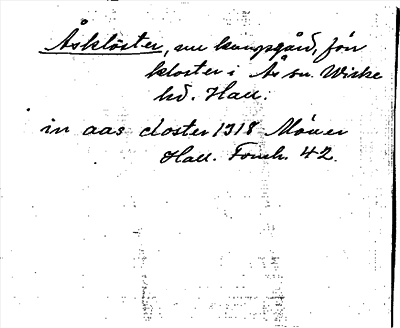 Åskloster, nu kungsgård, förr
kloster i Ås sn. Wiske
hd. Hall.
in aas closter 1318
Hall. 42.